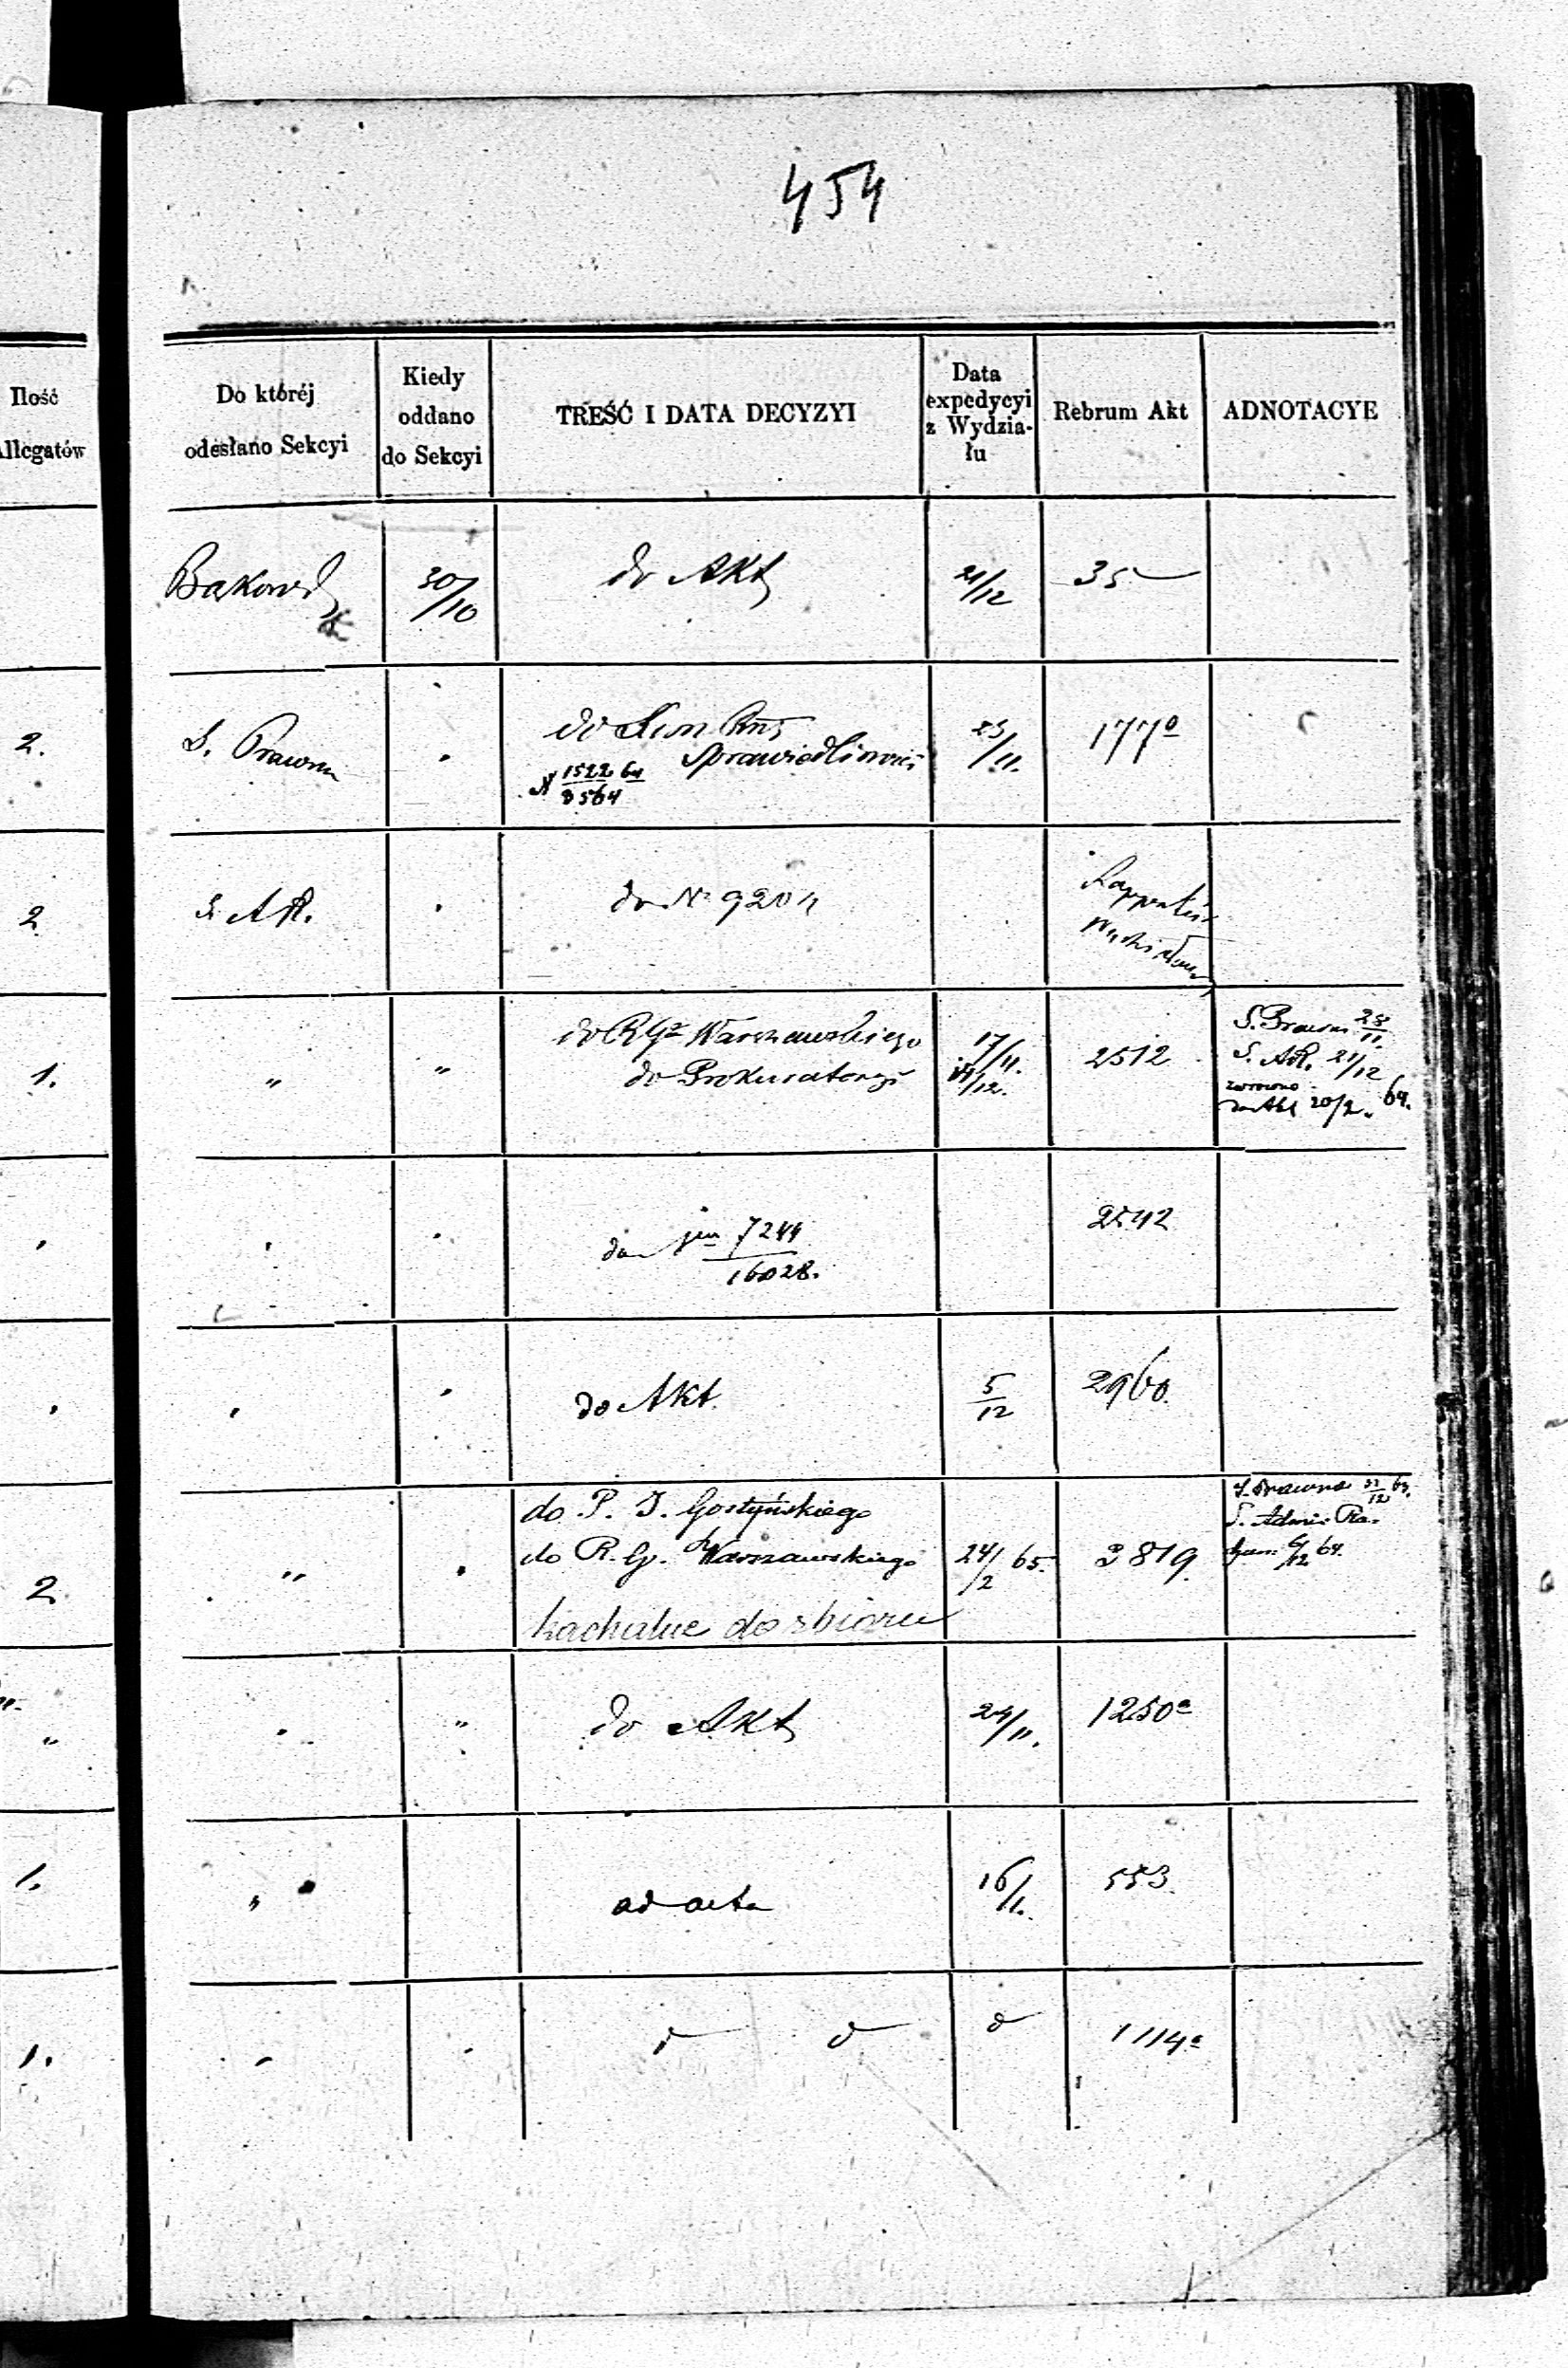 454
Ilość
Allegatów
Do któréj
odesłano Sekcyi
Kiedy
oddano
do Sekcyi
TREŚĆ I DATA DECYZYI
Data
expedycyi
z Wydzia-
łu
Rebrum Akt
ADNOTACYE
30/10
do Akt
21/12
35
2.
S. Prawna
"
do
Sprawiedliwości
N 1522 64
8564
23/11.
177a
2
S. AR.
"
do N 9204
1.
"
"
do R Gł Warszawskiego
do Prokuratoryi
17/11.
/12.
2512
S. Prawna 28/11.
S. AR. 21/12
do Akt 20/2. 64.
"
"
"
do jen 7244
16028.
2542
"
"
"
do Akt.
5/12
2960.
2
"
"
do P. J. Gostyńskiego
do R. G. Warszawskiego
do zbioru
24/2 65.
2819.
S. Prawna 12 64.
S. Admi.
/12 64.
"
"
"
do Akt
24/11.
1250a
1.
"
ad acta
16/1.
553.
1.
"
"
d d
d
1114a